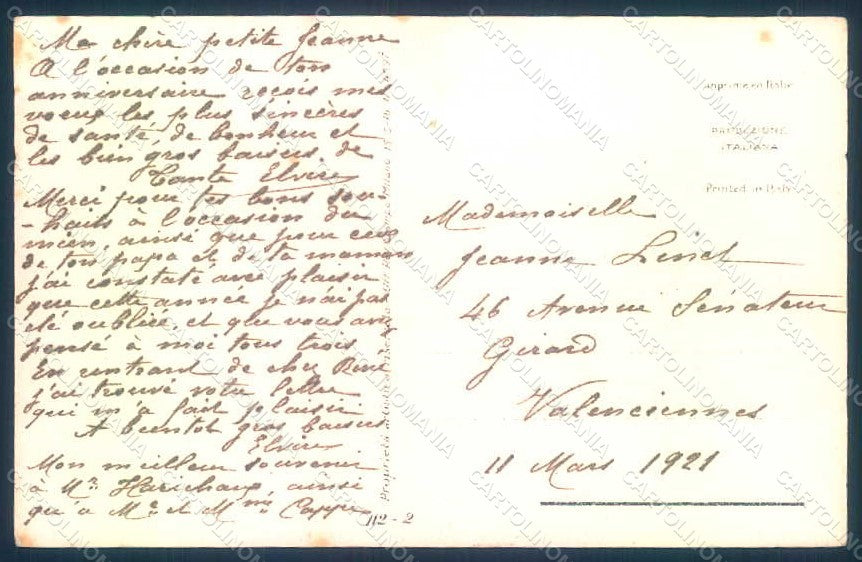 Ma chère petite Jeanne
A l'occasion de ton
anniversaire reçois mes
voeux les plus sincères
de santé, de bonheur et
les bien gros baisers de
Tante Elvire
Merci pour tes bons sou-
-haits à l'occasion du
mien, ainsi que pour ceux
de ton papa et de ta maman
j'ai constaté avec plaisir
que cette année je n'ai pas
été oubliée, et que vous avez
pensé à moi tous trois
En rentrant de chez René
j'ai trouvé votre lettre
qui m'a fait plaisir
A bientôt gros baisers
Elvire
Mon meilleur souvenir
à Mr ainsi
qu'à Mr et Mme
112-2
Imprimé en Italie
PRODUZIONE
ITALIANA
Printed in Italy
Mademoiselle
Jeanne Linet
46 Avenue Sénateur
Girard
Valenciennes
11 Mars 1921
CARTOLINOMANIA